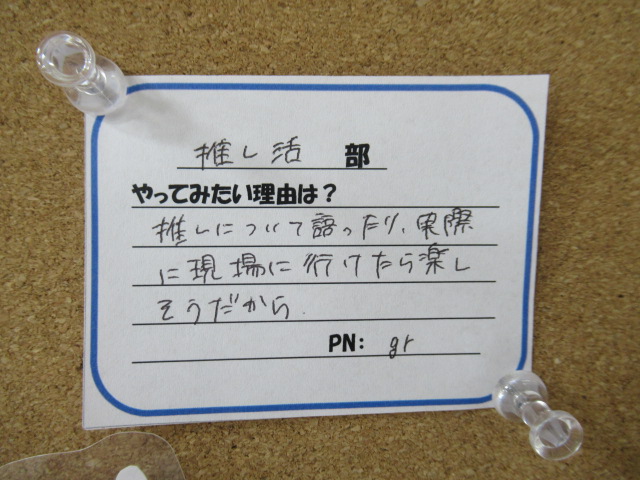 推し活 部
やってみたい理由は？
推しについて語ったり、実際
に現場に行けたら楽し
そうだから.
PN: gr